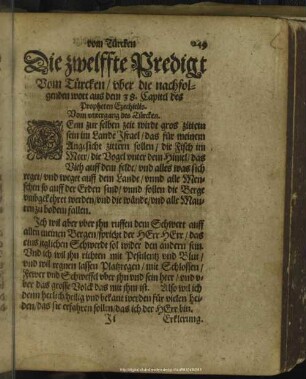 vom Türcken
249
Die zwelffte Predigt
Vom Türcken / vber die nachfol-
genden wort aus dem 38. Capitel des
Propheten Ezechielis.
Vom vntergang des Türcken.
DEnn zur selben zeit wirdt gros zittern
sein im Lande Israel / das für meinem
Angesicht zittern sollen / die Fisch im
Meer / die Vogel vnter dem Himel / das
Vieh auff dem felde / vnd alles was sich
reget / vnd weget auff dem Lande / vnnd alle Men-
schen so auff der Erden sind / vnnd sollen die Berge
vmbgekehret werden / vnd die wände / vnd alle Mau-
ren zu bodem fallen.
Ich wil aber vber jhn ruffen dem Schwert auff
allen meinen Bergen spricht der HErr HErr / das
eins jglichen Schwerdt sol wider den andern sein.
Vnd ich wil jhn richten mit Pestilentz vnd Blut /
vnd wil regnen lassen Platzregen / mit Schlossen /
Fewer vnd Schweffel vber jhn vnd sein heer / vnd v-
ber das grosse Volck das mit jhm ist. Also wil ich
denn herlich heilig vnd bekant werden für vielen hei-
den / das sie erfahren sollen / das ich der HErr bin.
Ii
Erklerung.